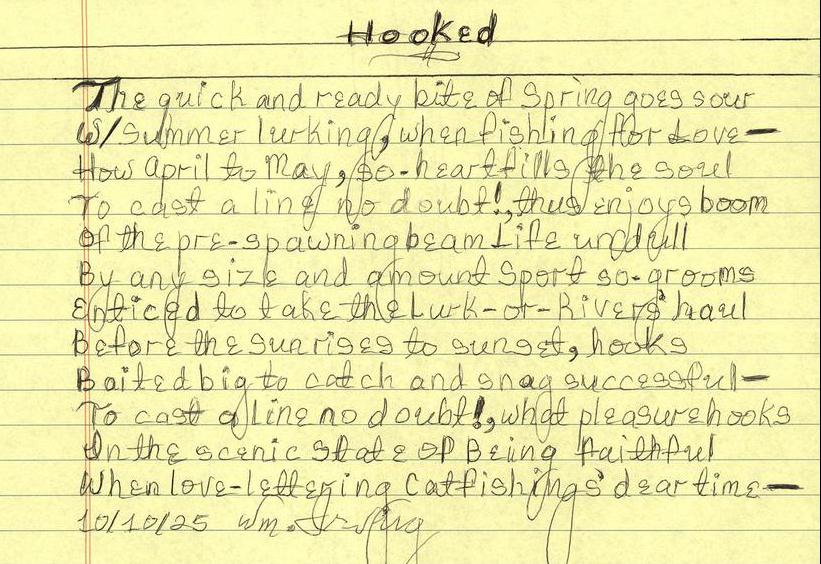 Hooked
The quick and ready bite of Spring goes sour
W/Summer lurking, when fishing for Love—
How April to May, so-heart fills the soul
To cast a line no doubt!, thus enjoys boom
Of the pre-spawning beam Life undull
By any size and amount Sport so-grooms
Enticed to take the Lurk-or-Rivers' haul
Before the sun rises to sunset, hooks
Baited big to catch and snag successful—
To cast a Line no doubt!, what pleasure hooks
In the scenic State of Being faithful
When love-lettering Catfishings' dear time—
10/10/25 Wm.